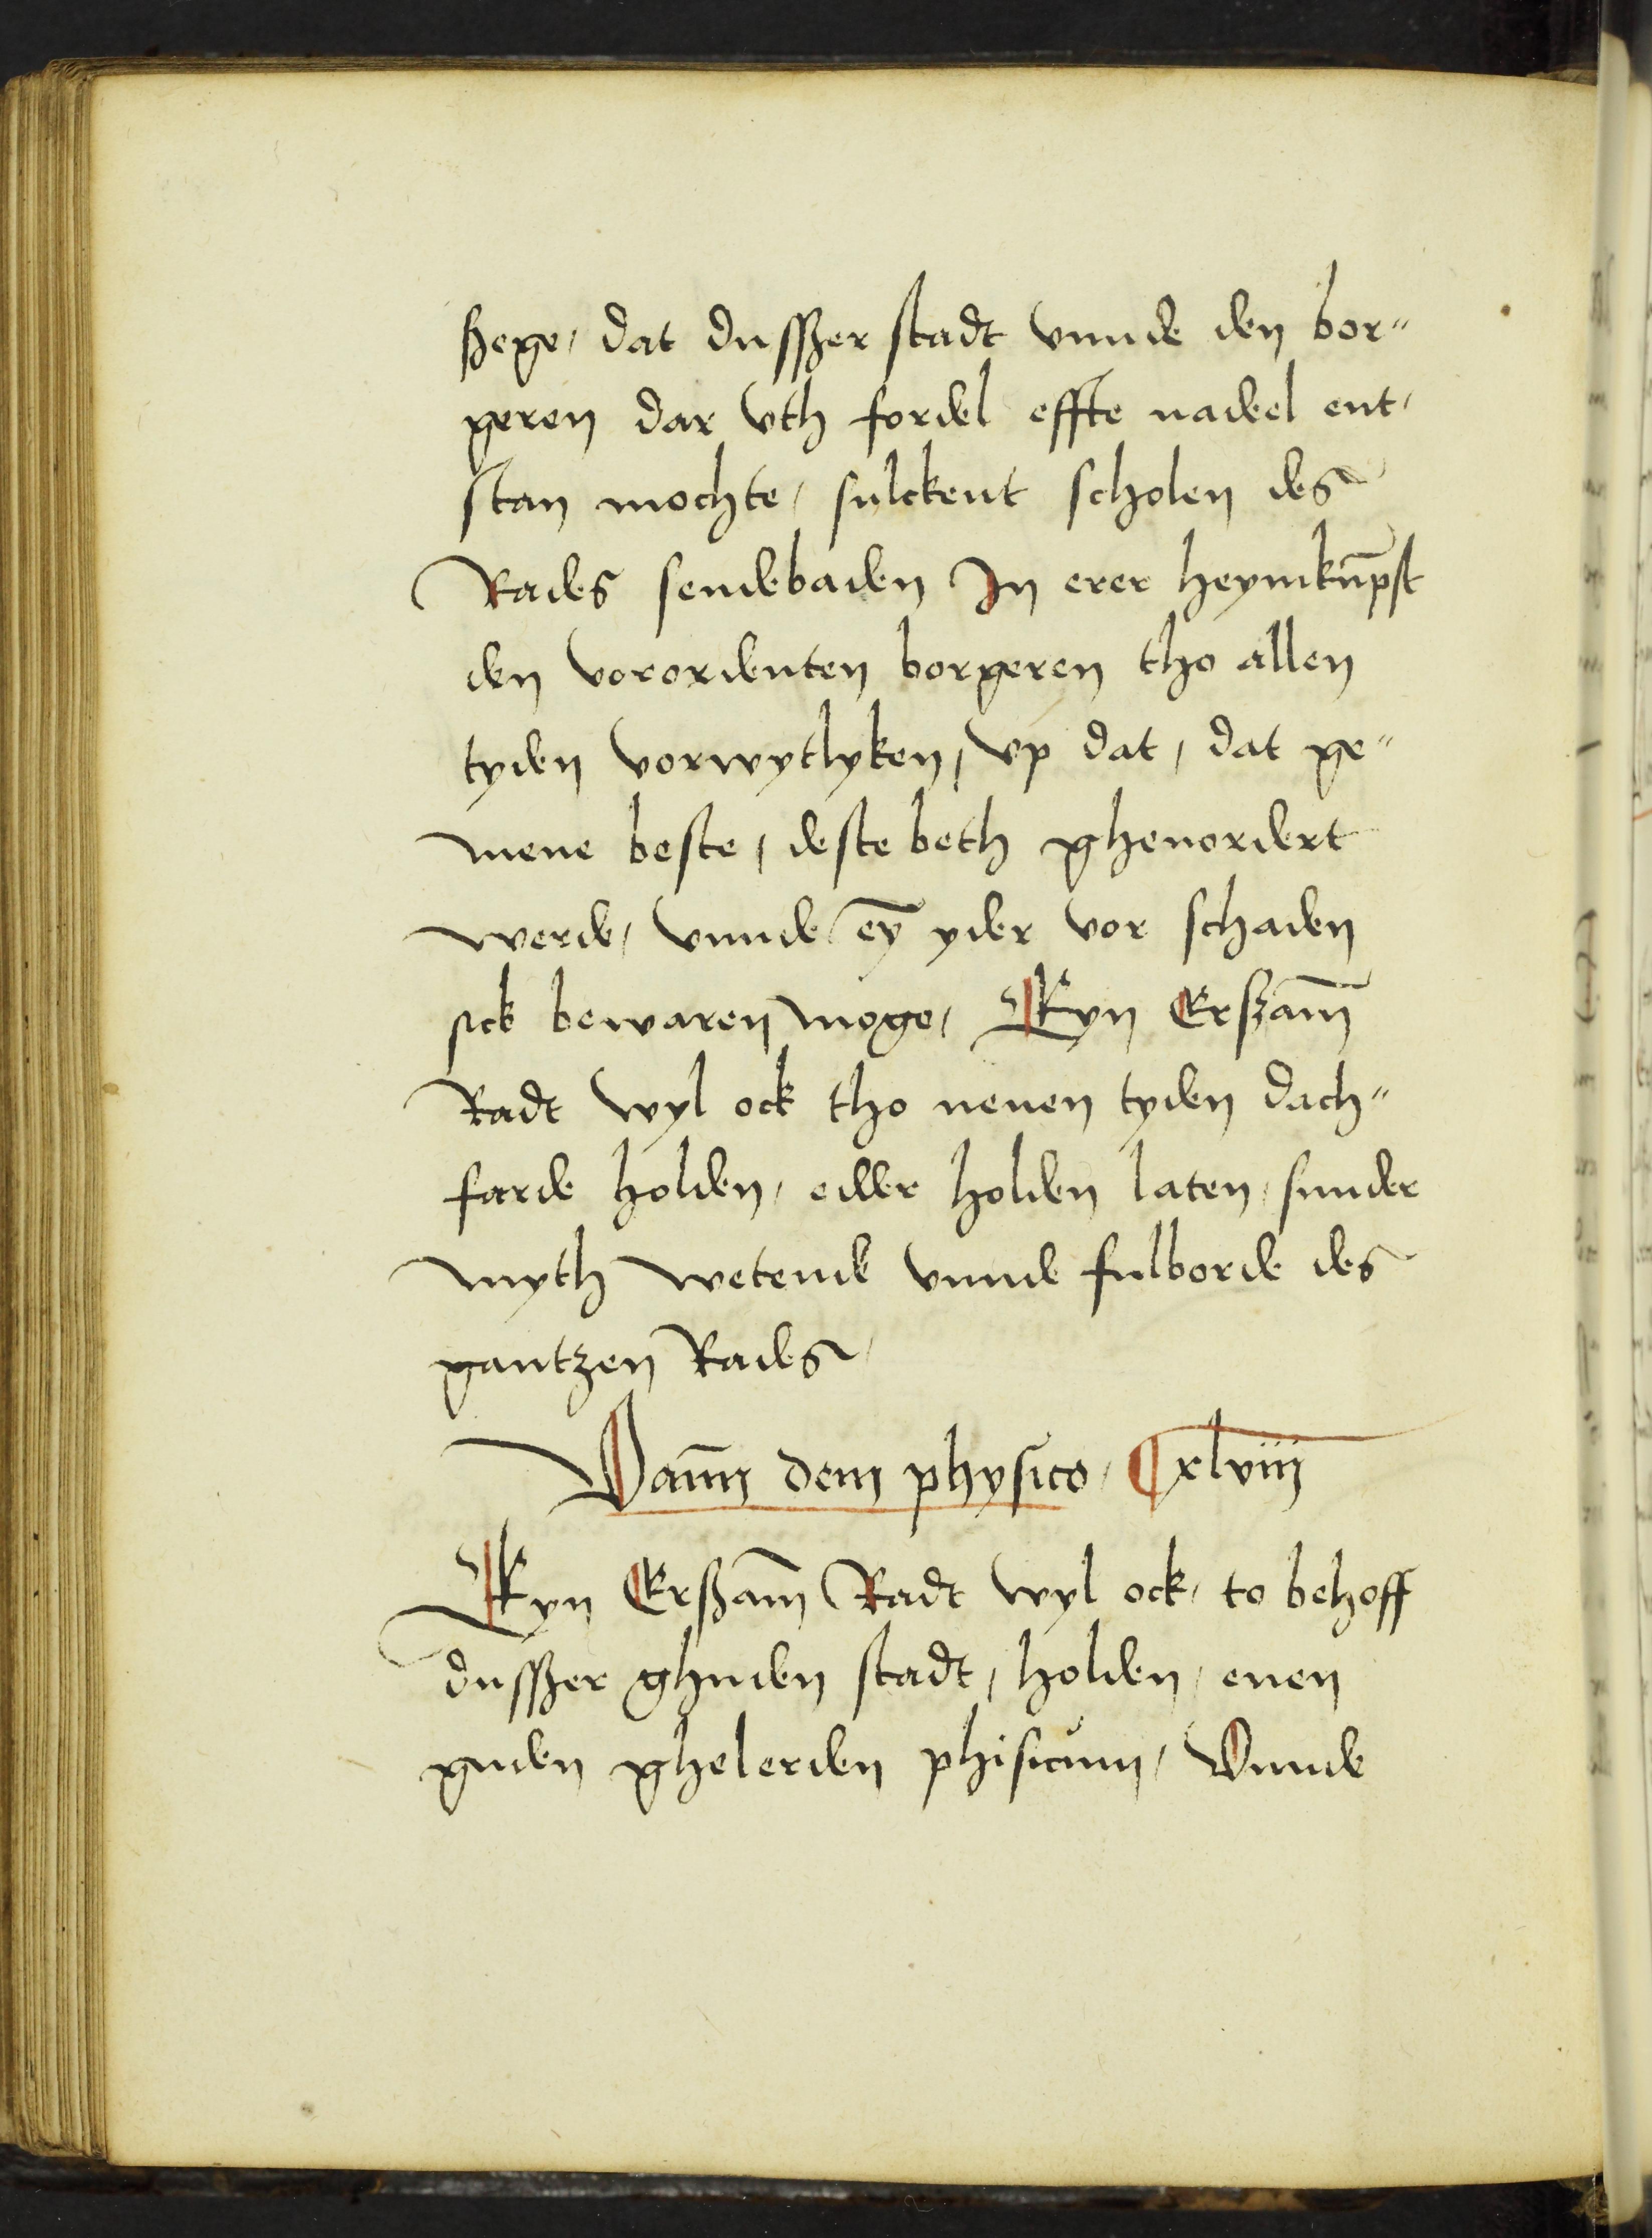 ßege, dat dussßer stadt vnnde den bor"
geren dar vth fordel effte nadeel ent,
stan mochte, sulckent scholen des
Rades sendebaden In erer heymkūpst
den verordenten borgeren tho allen
tyden vorwytlyken, vp dat, dat ge"
mene beste, deste beth ghenordert
werde, vnnde eȳ yder vor schaden
sick bewaren moge, Eyn Erßam̄
Radt wyl ock tho nenen tyden dach"
farde holden, edder holden laten, sunder
myth wetende vnnde fulborde des
gantzen Rades,
Vann dem physico, Cxlviij
Eyn Erßam̄ Radt wyl ock, to behoff
dussßer ghuden stadt, holden, enen
guden ghelerden phisicum, Vnnde